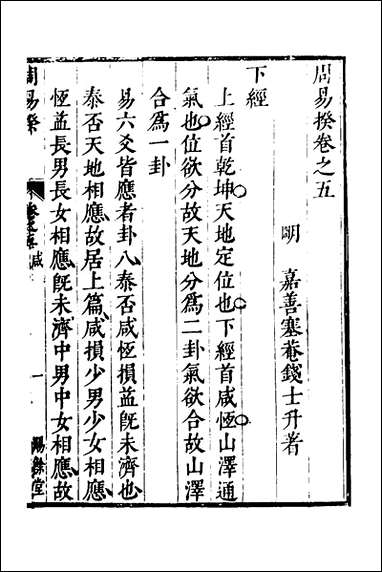 周易揆卷之五
明 嘉善塞菴錢士升著
下經
上經首乾坤天地定位也下經首咸恆山澤通
氣也位欲分故天地分爲二卦氣欲合故山澤
合爲一卦
易六爻皆應者卦八泰否咸恆損益旣未濟也
泰否天地相應故居上篇咸損少男少女相應
恆益長男長女相應旣未濟中男中女相應故
周易揆
咸
一
賜餘堂